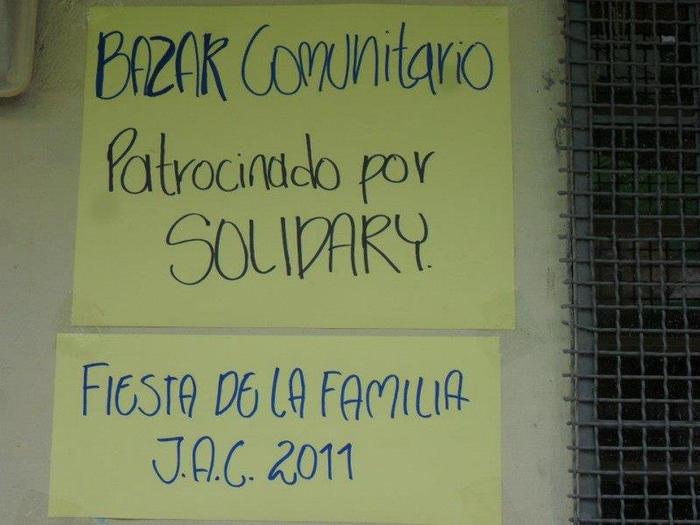 BAZAR Comunitario
Patrocinado por
SOLIDARY.
FIESTA DE LA FAMILIA
J.A.C. 2011